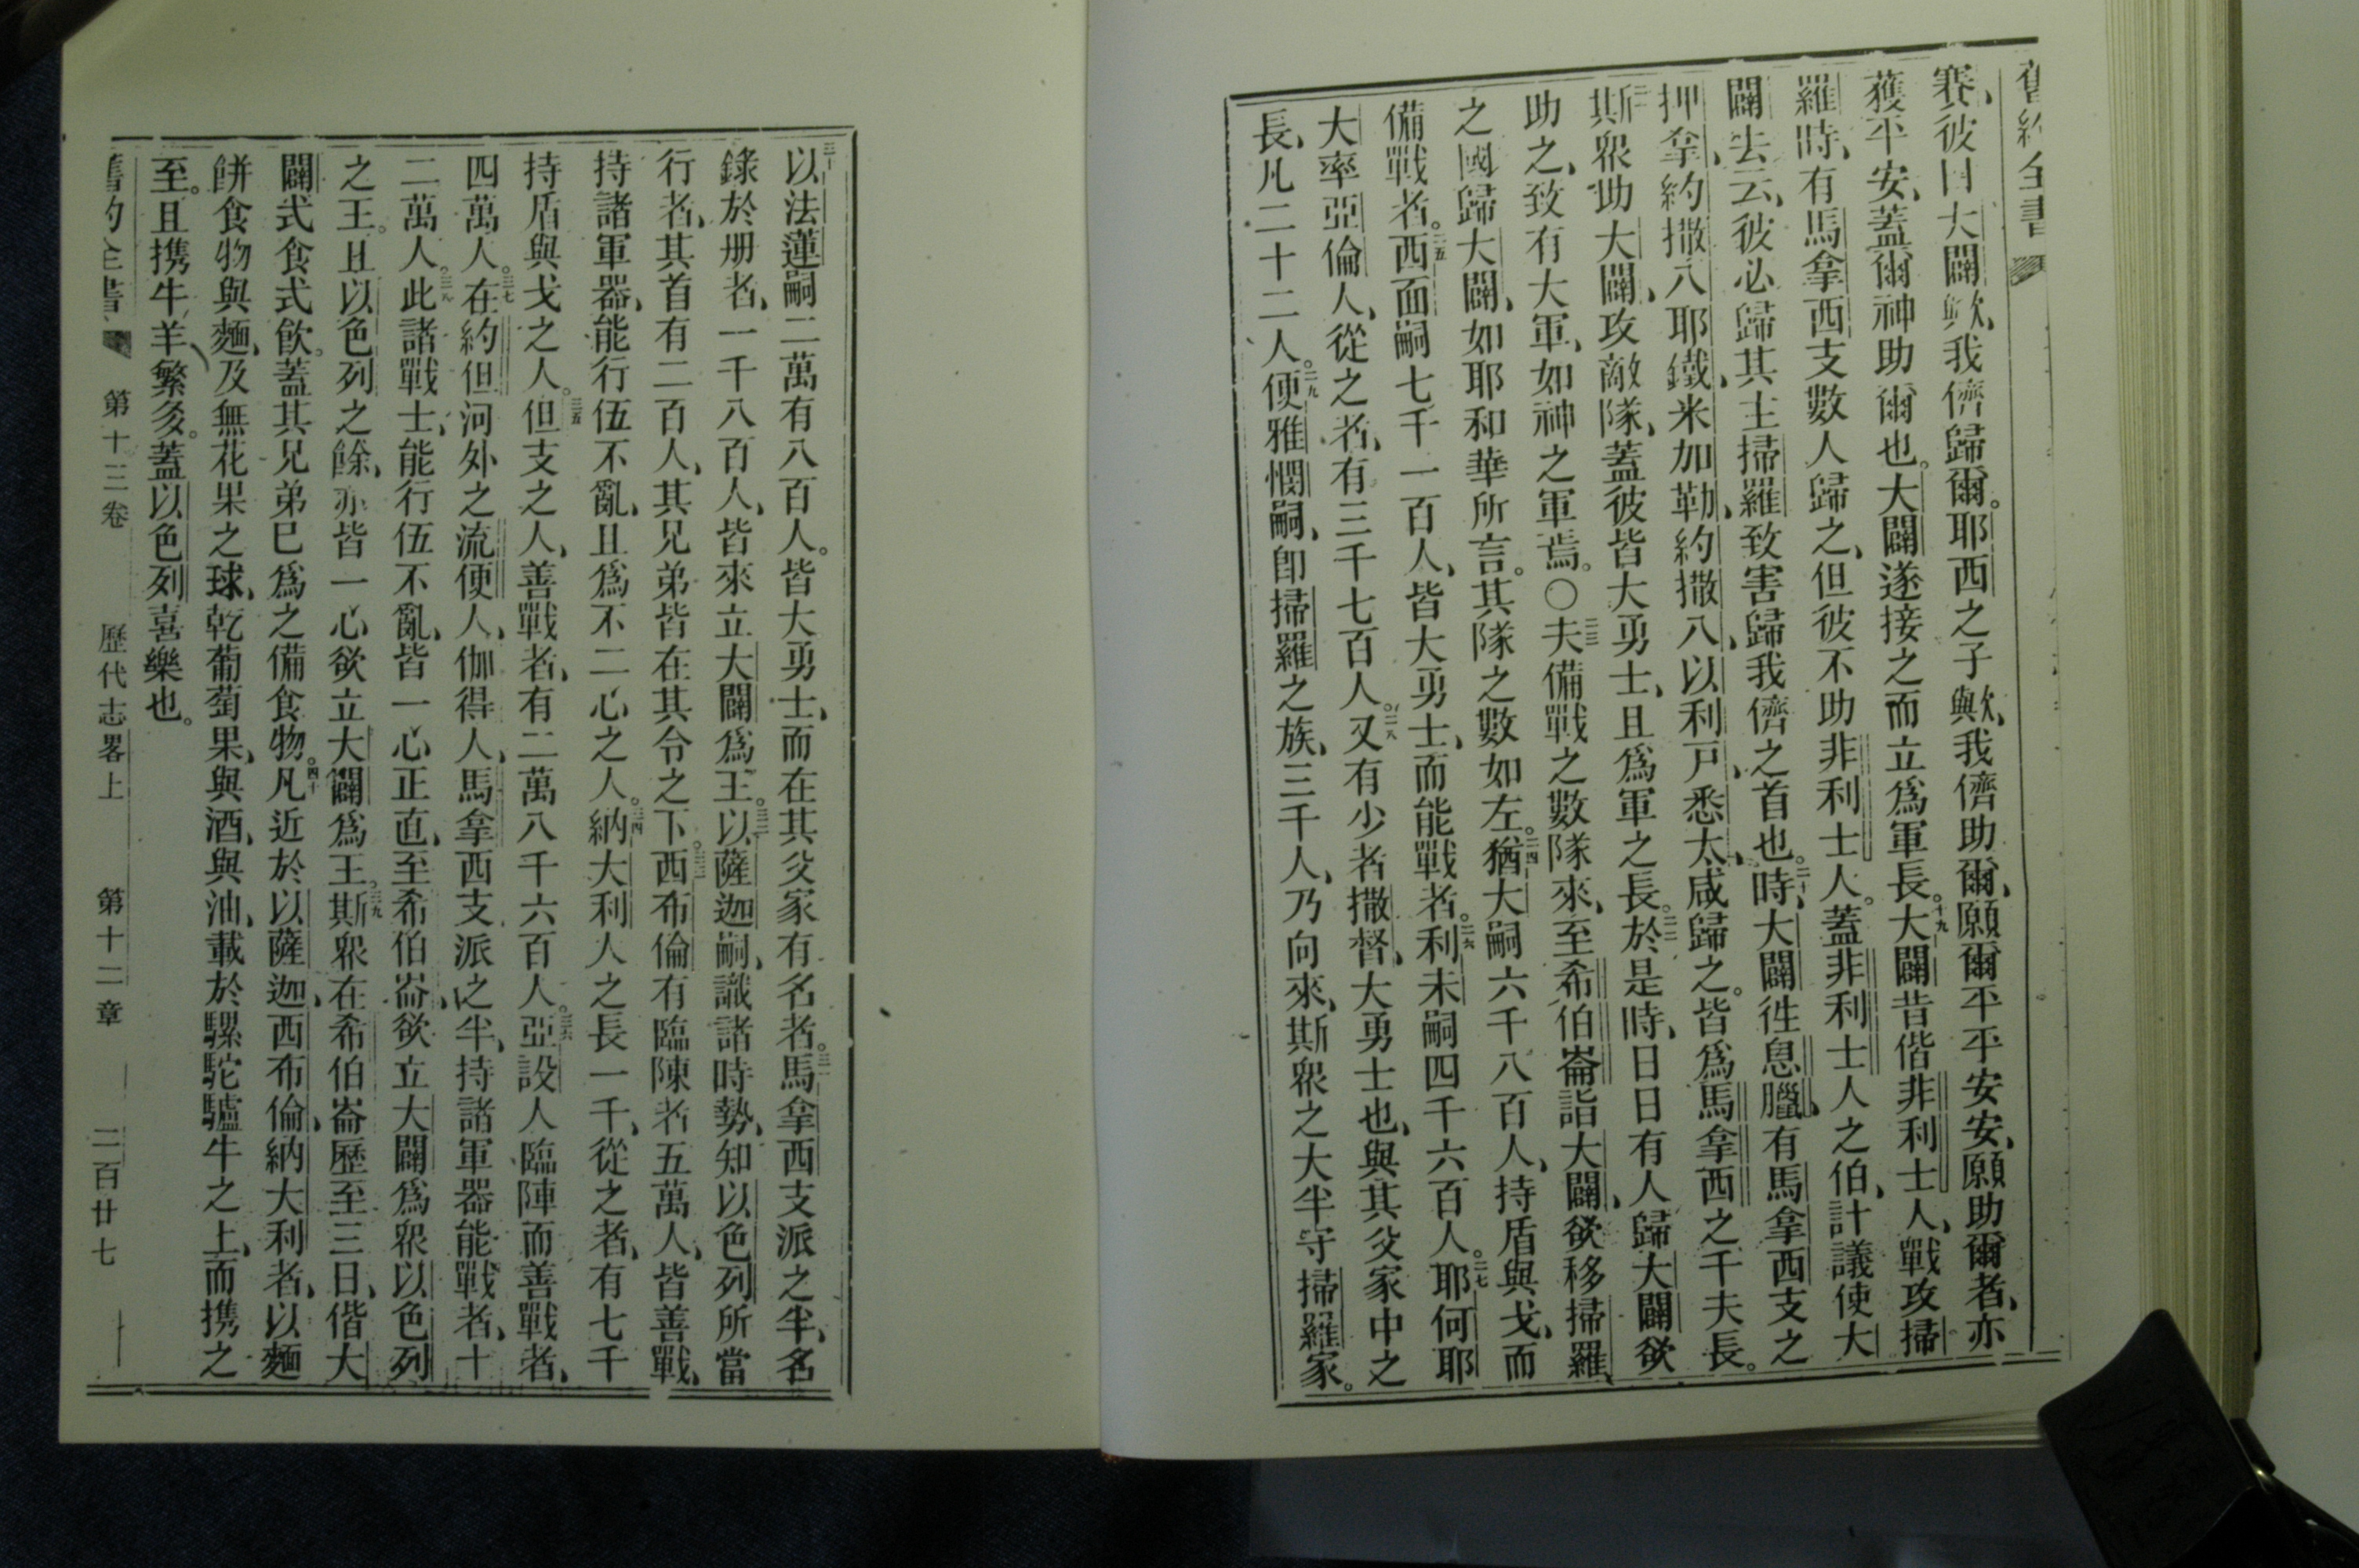 舊約全書
賽、彼曰大闢歟、我儕歸爾。耶西之子歟、我儕助爾、願爾平平安安、願助爾者、亦
獲平安、蓋爾神助爾也。大闢遂接之而立爲軍長。十九大闢昔偕非利士人、戰攻掃
羅時、有馬拿西支數人歸之、但彼不助非利士人。蓋非利士人之伯、計議使大
闢去云、彼必歸其主掃羅致害歸我儕之首也。二十時、大闢徃息臘、有馬拿西支之
押拿、約撒八耶鐵、米加勒、約撒八、以利戸、悉太、咸歸之。皆爲馬拿西之千夫長。
斯衆助大闢、攻敵隊、蓋彼皆大勇士、且爲軍之長。二二於是時、日日有人歸大闢欲
助之、致有大軍、如神之軍焉。○二三夫備戰之數隊來、至希伯崙詣大闢、欲移掃羅
之國歸大闢、如耶和華所言。其隊之數如左。二四猶大嗣六千八百人、持盾與戈、而
備戰者。二五西面嗣七千一百人、皆大勇士、而能戰者。二六利未嗣四千六百人。二七耶何耶
大率亞倫人、從之者、有三千七百人。二八又有少者撒督、大勇士也、與其父家中之
長、凡二十二人。二九便雅憫嗣、卽掃羅之族、三千人、乃向來、斯衆之大半守掃羅家。
三十以法蓮嗣二萬有八百人。皆大勇士、而在其父家有名者。三一馬拿西支派之半、名
錄於册者、一千八百人、皆來立大闢爲王。三二以薩迦嗣、識諸時勢、知以色列所當
行者、其首有二百人、其兄弟皆在其令之下。三三西布倫有臨陳者五萬人、皆善戰、
持諸軍器、能行伍不亂、且爲不二心之人。三四納大利人之長一千、從之者、有七千
持盾與戈之人。三五但支之人、善戰者、有二萬八千六百人。三六亞設人臨陣而善戰者、
四萬人。三七在約但河外之流便人、伽得人、馬拿西支派之半、持諸軍器能戰者、十
二萬人。三八此諸戰士、能行伍不亂、皆一心正直、至希伯崙、欲立大闢爲衆以色列
之王。且以色列之餘、亦皆一心欲立大闢爲王。三九斯衆在希伯崙歷至三日、偕大
闢式食式飲。蓋其兄弟已爲之備食物。四十凡近於以薩迦、西布倫、納大利者、以麵
餅食物與麵、及無花果之球、乾葡萄果、與酒、與油、載於騾駝驢牛之上、而携之
至。且携牛羊繁多。蓋以色列喜樂也。
舊約全書 第十三卷 歷代志畧上 第十二章 二百廿七